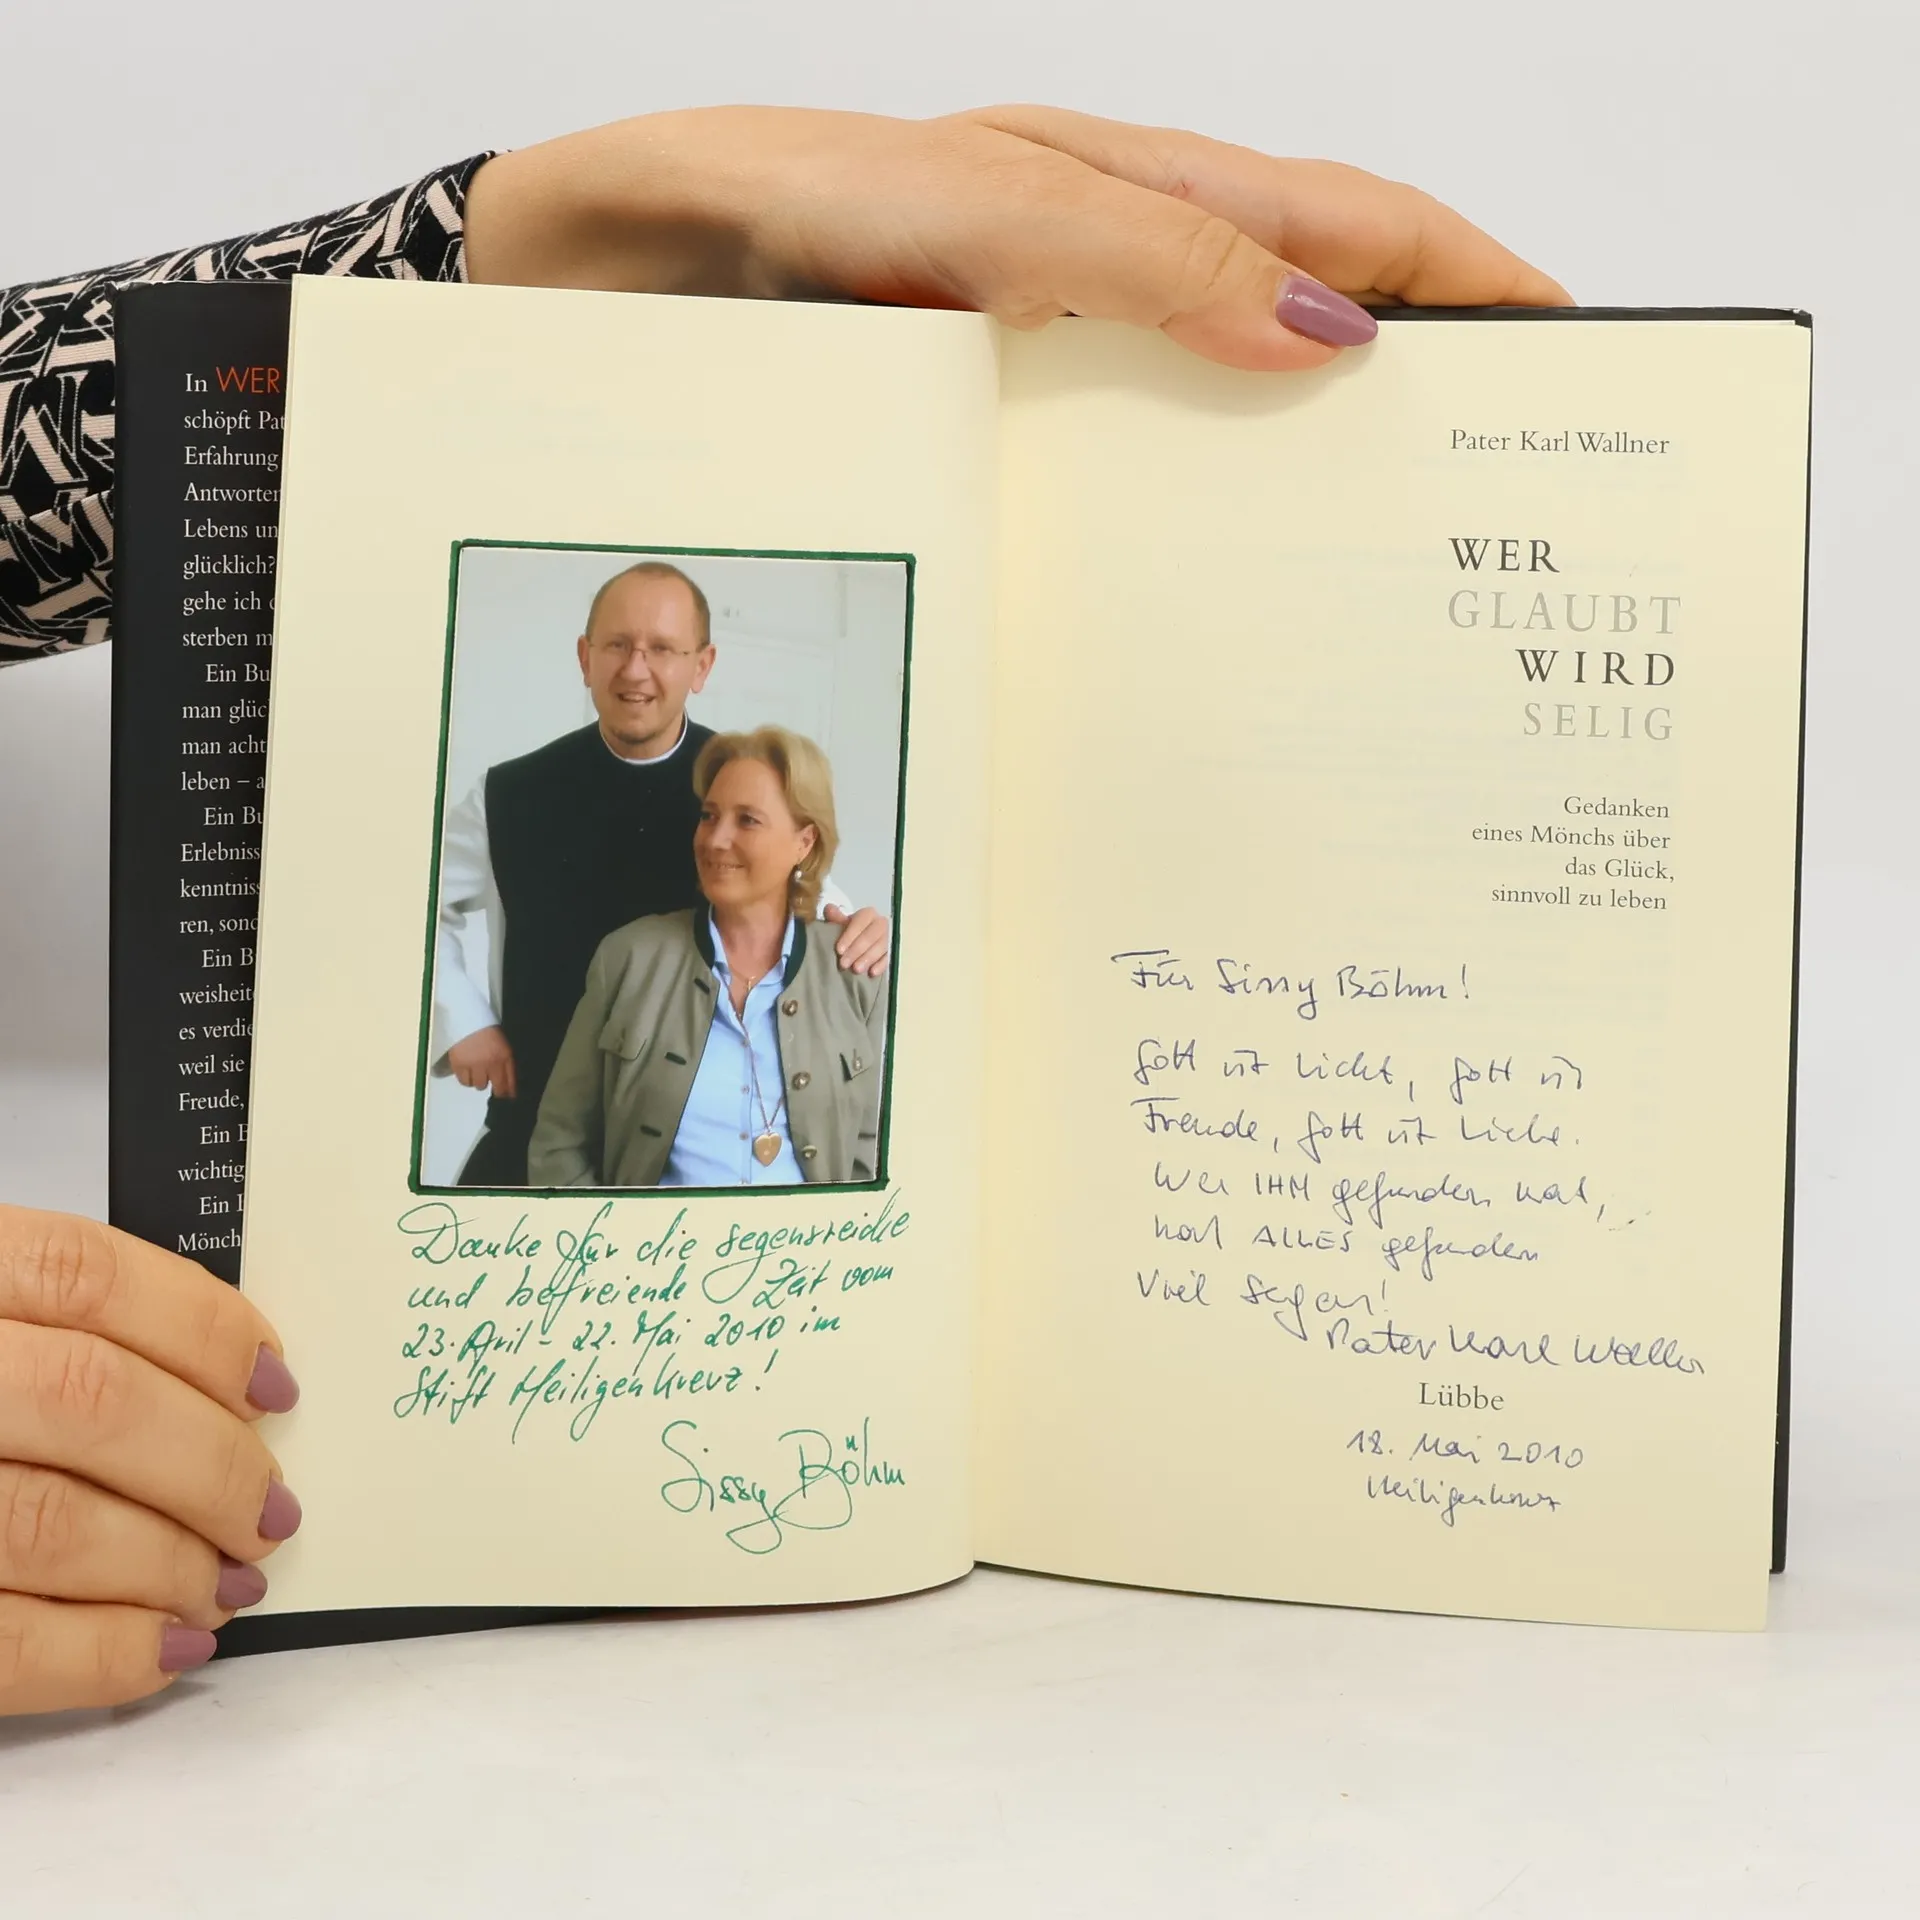 In WER
schöpft Pat
Erfahrung
Antworten
Lebens un
glücklich?
gehe ich
sterben m
Ein Bu
man glüc
man acht
leben – a
Ein Bu
Erlebniss
kenntnis
ren, sond
Ein B
weisheit
es verdie
weil sie
Freude,
Ein B
wichtig
Ein
Mönch
Danke für die segensreiche
und befreiende Zeit vom
23. April - 22. Mai 2010 im
Stift Heiligenkreuz!
Sissy Böhm
Pater Karl Wallner
WER
GLAUBT
WIRD
SELIG
Gedanken
eines Mönchs über
das Glück,
sinnvoll zu leben
Für Sissy Böhm!
Gott ist Licht, Gott ist
Freude, Gott ist Liebe.
Wer IHM gefunden hat,
hat ALLES gefunden
Viel Segen!
Pater Karl Wallner
Lübbe
18. Mai 2010
Heiligenkreuz